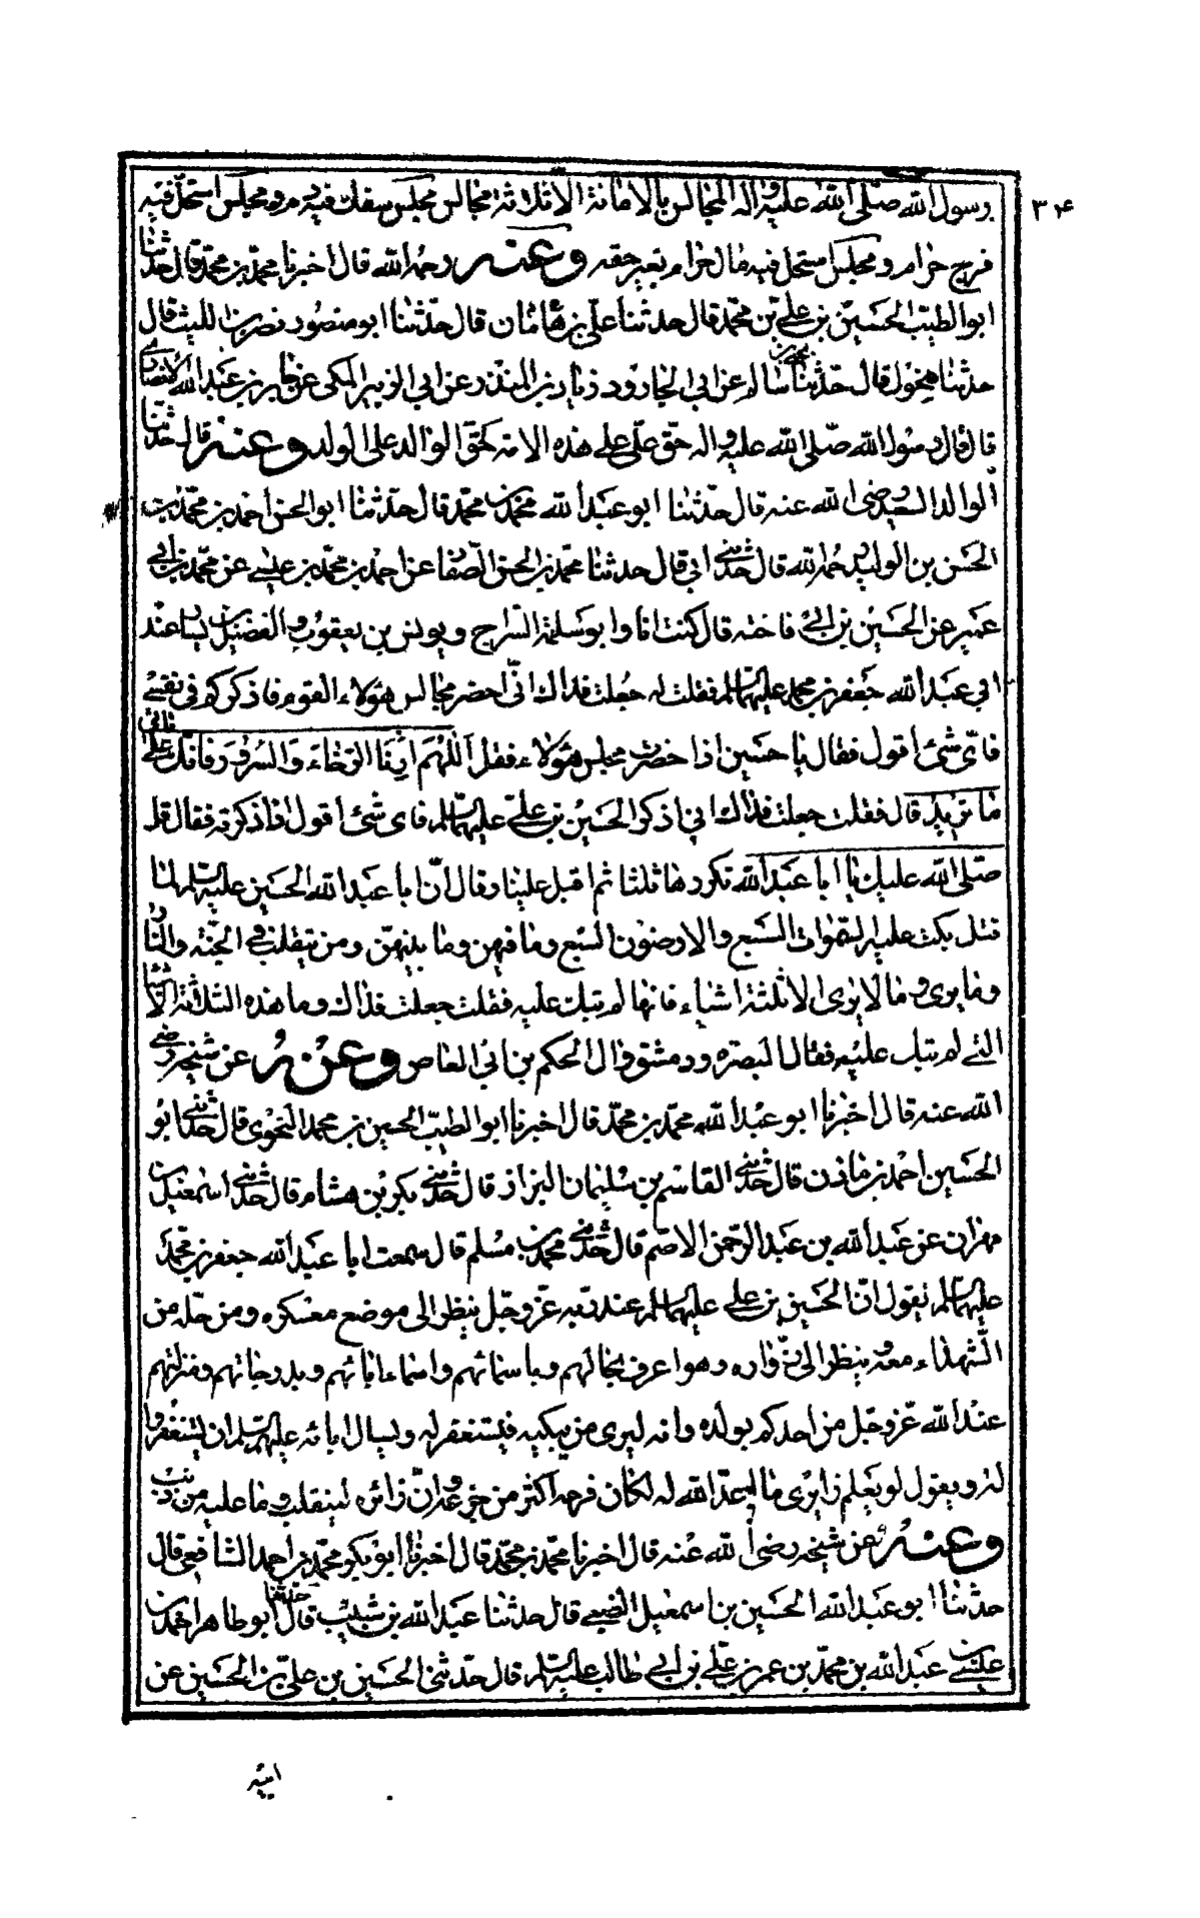 ۳۴
رسول الله صلّى الله عليه واله المجالس بالامانة الا ثلاثة مجالس مجلس سفك فيه دم ومجلس استحل فيه
فرج حرام ومجلس استحل فيه مال حرام بغير حقه وعنه رحمه الله قال اخبرنا محمد بن محمد قال حدثنا
ابو الطيب الحسين بن علي بن محمد قال حدثنا علي بن هامان قال حدثنا ابو منصور نصر بن الليث قال
حدثنا مخول قال حدثنا يحيى بن سالم عن ابي الجارود زياد بن المنذر عن ابي الزبير المكي عن جابر بن عبد الله الانصاري
قال قال رسول الله صلّى الله عليه واله حق علي على هذه الامة كحق الوالد على الولد وعنه قال حدثنا
الوالد السعيد رضي الله عنه قال حدثنا ابو عبد الله محمد بن محمد قال حدثنا ابو الحسن احمد بن محمد بن
الحسن بن الوليد رحمه الله قال حدثني ابي قال حدثنا محمد بن الحسن الصفا عن احمد بن محمد بن عيسى عن محمد بن ابي
عمير عن الحسين بن ابي فاخته قال كنت انا وابو سلمة السراج ويونس بن يعقوب والفضيل بن يسار عند
ابي عبد الله جعفر بن محمد عليهما السلم فقلت له جعلت فداك انّي احضر مجالس هؤلاء القوم فاذكركم في نفسي
فاي شئ اقول فقال يا حسين اذا حضرت مجلس هؤلاء فقل اللهم ارنا الرخاء والسرور فانك تاتي على
ما تريد قال فقلت جعلت فداك اني اذكر الحسين بن علي عليهما السلم فاي شئ اقول اذا ذكرته فقال قل
صلّى الله عليك يا ابا عبد الله تكررها ثلثا ثم اقبل علينا وقال انّ ابا عبد الله الحسين عليه السلم لما
قتل بكت عليه السموات السبع والارضون السبع وما فيهن وما بينهن ومن يتقلب في الجنة والنار
وما يرى وما لا يرى الا ثلثة اشياء فانها لم تبك عليه فقلت جعلت فداك وما هذه الثلاثة الاشياء
التي لم تبك عليه فقال البصرة ودمشق وال الحكم بن ابي العاص وعنه عن شيخه رضي
الله عنه قال اخبرنا ابو عبد الله محمد بن محمد قال اخبرنا ابو الطيب الحسين بن محمد النحوي قال حدثني ابو
الحسين احمد بن مازن قال حدثني القاسم بن سليمان البزاز قال حدثني بكر بن هشام قال حدثني اسمعيل بن
مهران عن عبد الله بن عبد الرحمن الاصم قال حدثني محمد بن مسلم قال سمعت ابا عبد الله جعفر بن محمد
عليهما السلم يقول انّ الحسين بن علي عليهما السلم عند ربه عز وجل ينظر الى موضع معسكره ومن حله من
الشهداء معه وينظر الى زواره وهو اعرف بحالهم وباسمائهم واسماء ابائهم وبدرجاتهم ومنزلتهم
عند الله عز وجل من احدكم بولده وانه ليرى من يبكيه فيستغفر له ويسال ابائه عليهم السلم ان يستغفروا
له ويقول لو يعلم زايري ما اعد الله له لكان فرحه اكثر من جزعه وانّ زائره لينقلب وما عليه من ذنب
وعنه عن شيخه رضي الله عنه قال اخبرنا محمد بن محمد قال اخبرنا ابو بكر محمد بن احمد الشافعي قال
حدثنا ابو عبد الله الحسين بن اسمعيل الضبي قال حدثنا عبد الله بن شبيب قال حدثنا ابو طاهر احمد بن
عيسى بن عبد الله بن محمد بن عمر بن علي بن ابي طالب عليه السلم قال حدثني الحسين بن علي بن الحسين عن
ابيه